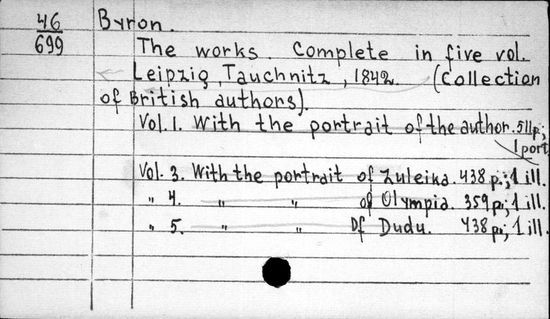 46 Byron.
699 The works Complete in five vol.
Leipzig, Tauchnitz, 1842. (Collection
of British authors).
Vol. 1. With the portrait of the author. 511p;
1 port
Vol. 3. With the portrait of Zuleika. 438 p.; 1 ill.
" 4. " " of Olympia. 359 p.; 1 ill.
" 5. " " Of Dudu. 438 p.; 1 ill.